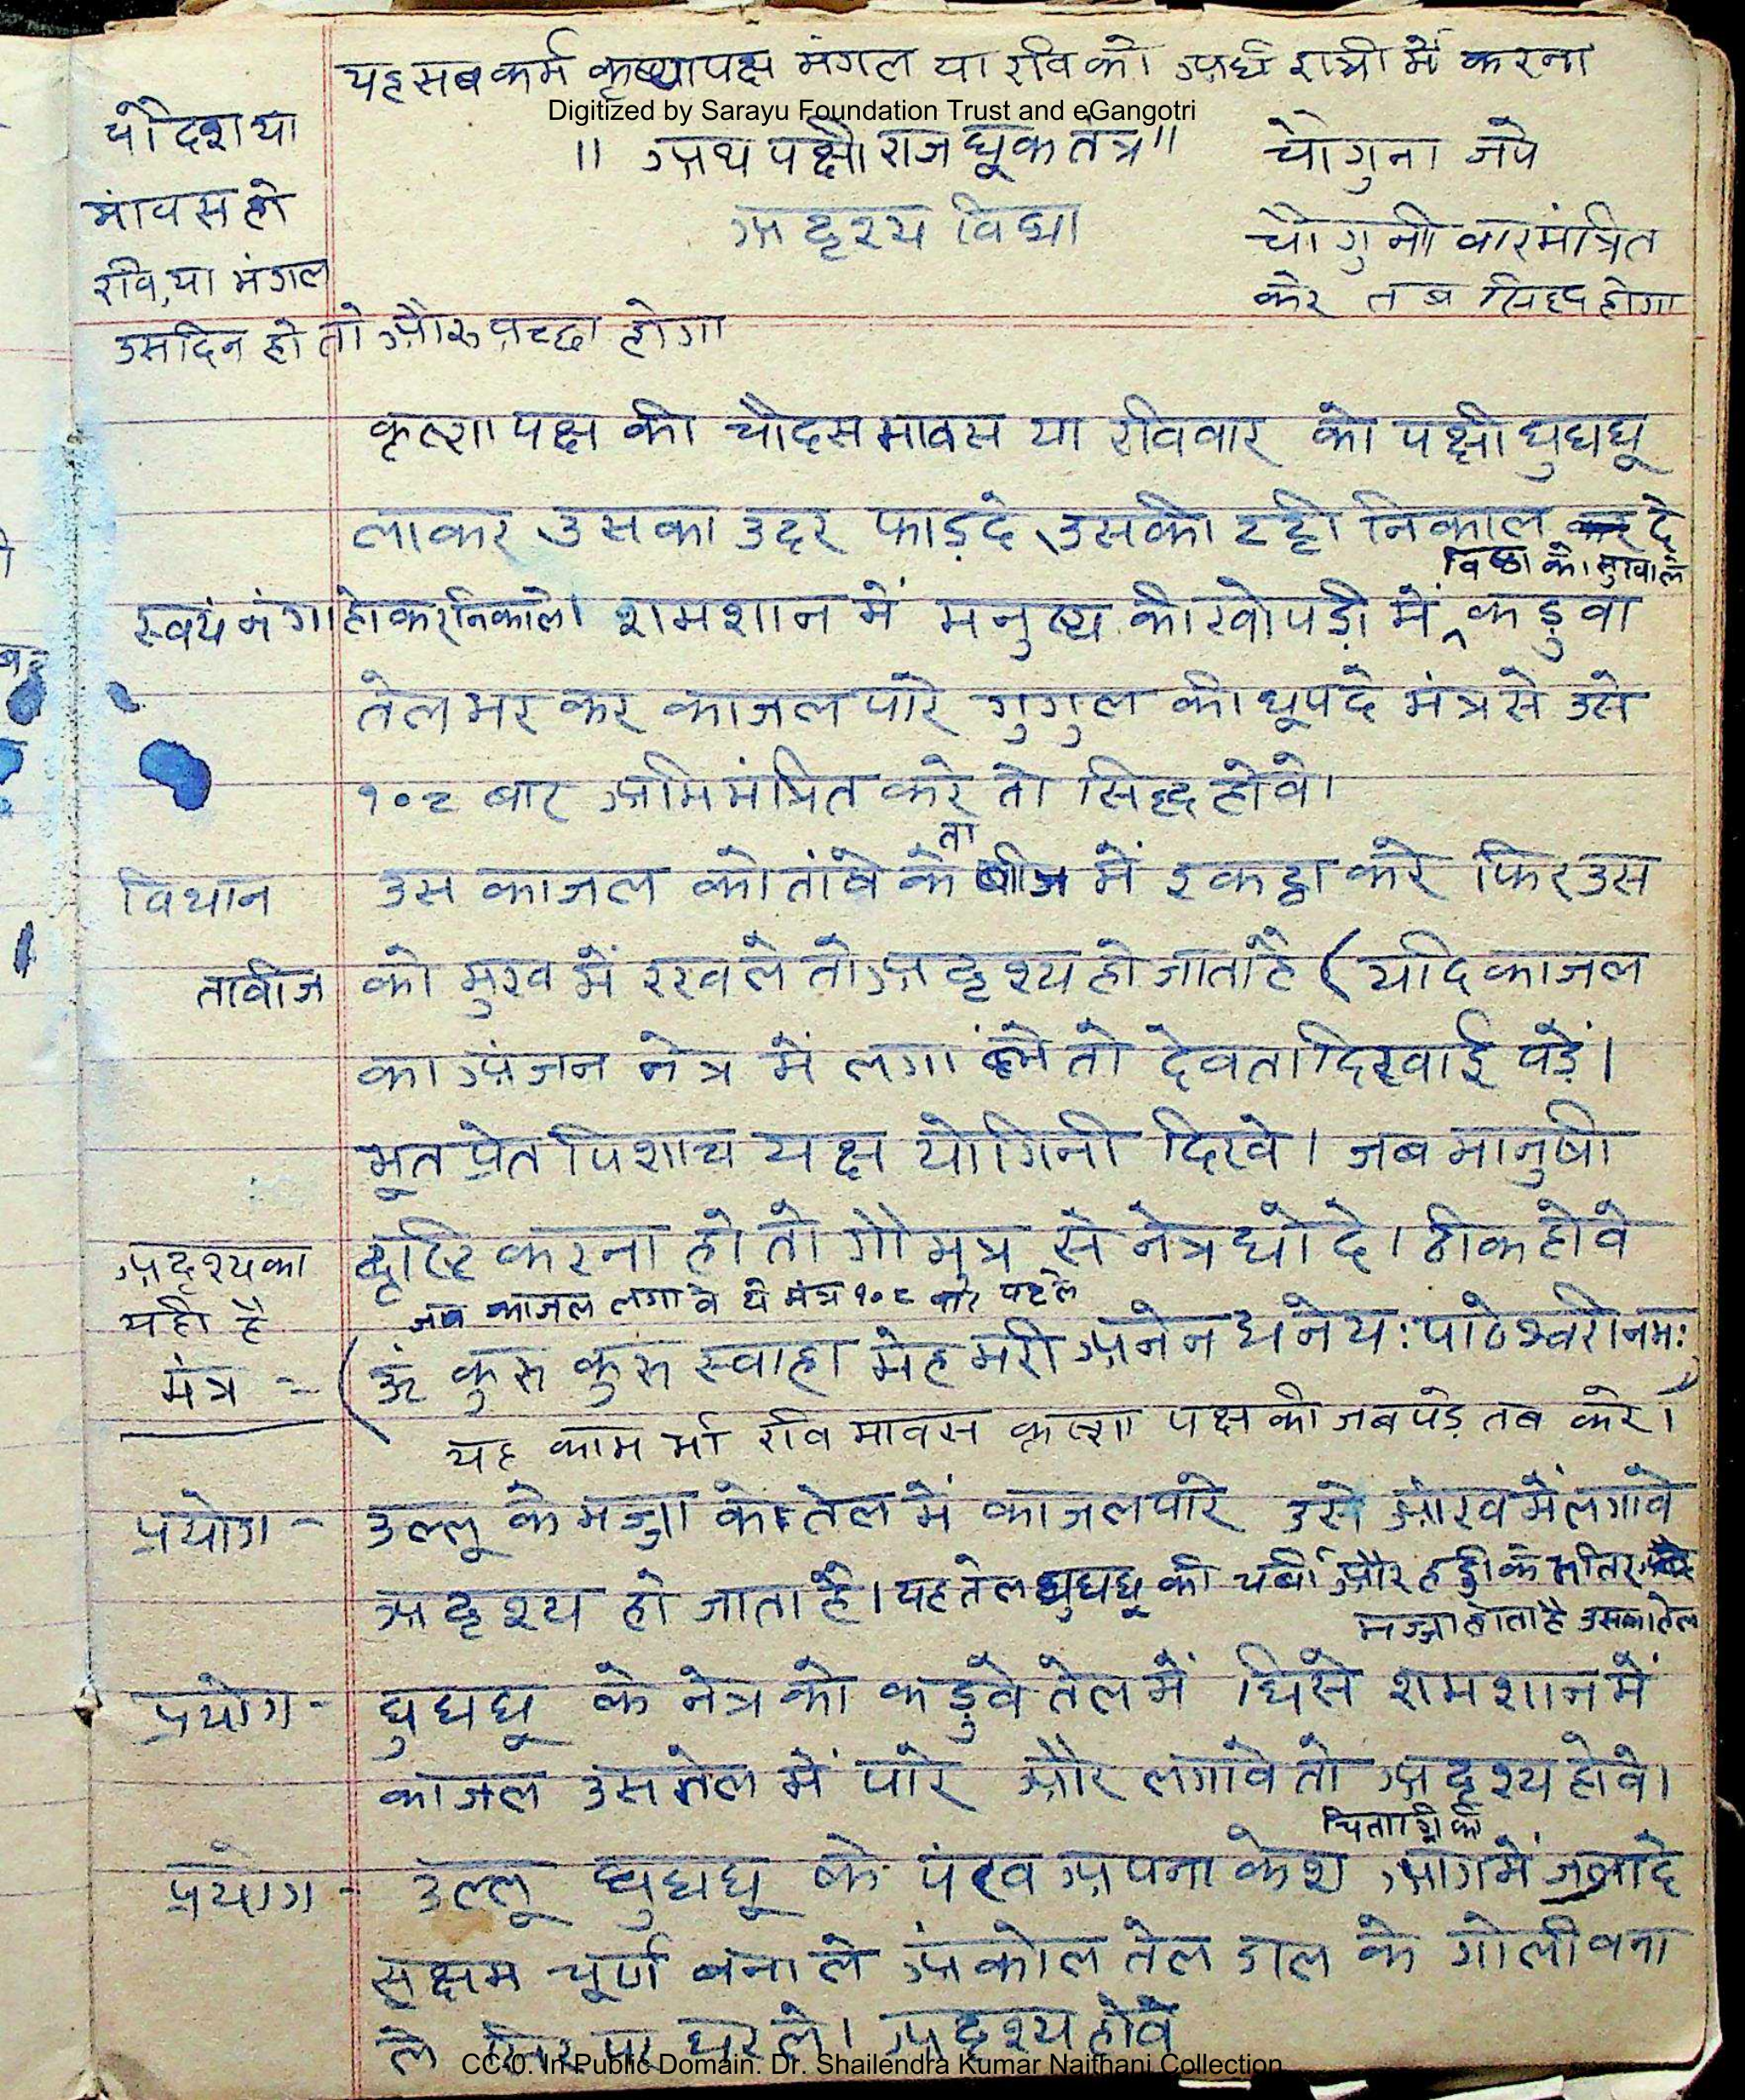 यह सब कर्म कृष्णपक्ष मंगल या रवि को अर्ध रात्री में करना
Digitized by Sarayu Foundation Trust and eGangotri
चौदश या
मांवस हो
रवि, या मंगल
उसदिन हो तो और अच्छा होगा
॥ अथ पक्षीराज घूक तंत्र ॥
अदृश्य विद्या
चौगुना जपे
चौगुनी वार मंत्रित
करे तब सिद्ध होगा
कृष्ण पक्ष की चौदस मावस या रविवार को पक्षी घुघघू
लाकर उसका उदर फाड़दे, उसकी टट्टी निकाल दे
विष्ठा को सुखाले
स्वयं नंगा होकर निकाले। शमशान में मनुष्य की खोपड़ी में कडुवा
तेल भर कर काजल पारे गुगुल की धूप दे मंत्र से उसे
१०८ बार अभिमंत्रित करे तो सिद्ध होवे।
विधान उस काजल को तांबे के ताबीज में इकठ्ठा करे फिर उस
तावीज को मुख में रखले तो अदृश्य हो जाता है (यदि काजल
का अंजन नेत्र में लगा ले तो देवता दिखाई पड़ें।
भूत प्रेत पिशाच यक्ष योगिनी दिखे। जब मानुषी
दृष्टि करना हो तो गौमुत्र से नेत्र धो दे। ठीक होवे
अदृश्य का
यही है
जब काजल लगावे ये मंत्र १०८ बार पढ़ले
मंत्र = (ॐ कुरु कुरु स्वाहा मेहमरी अनेन धनेय: पाठेश्वरी नम:)
यह काम रवि मावस कृष्ण पक्ष की जब पड़े तब करे।
प्रयोग - उल्लू के मज्जा के तेल में काजल पारे उसे आंख में लगावे
अदृश्य हो जाता है। यह तेल घुघघू की चर्बी और हड्डी के भीतर
मज्जा होता है उसका तेल
प्रयोग - घुघघू के नेत्र को कडुवे तेल में घिसे शमशान में
काजल उस तेल में पारे और लगावे तो अदृश्य होवे।
प्रयोग - उल्लू घुघघू के पंख अपना केश आग में जलादे
सूक्षम चूर्ण बनाले अंकोल तेल डाल के गोली बना
ले सिर पर धरले। अदृश्य होवे
CC-0. In Public Domain. Dr. Shailendra Kumar Naithani Collection